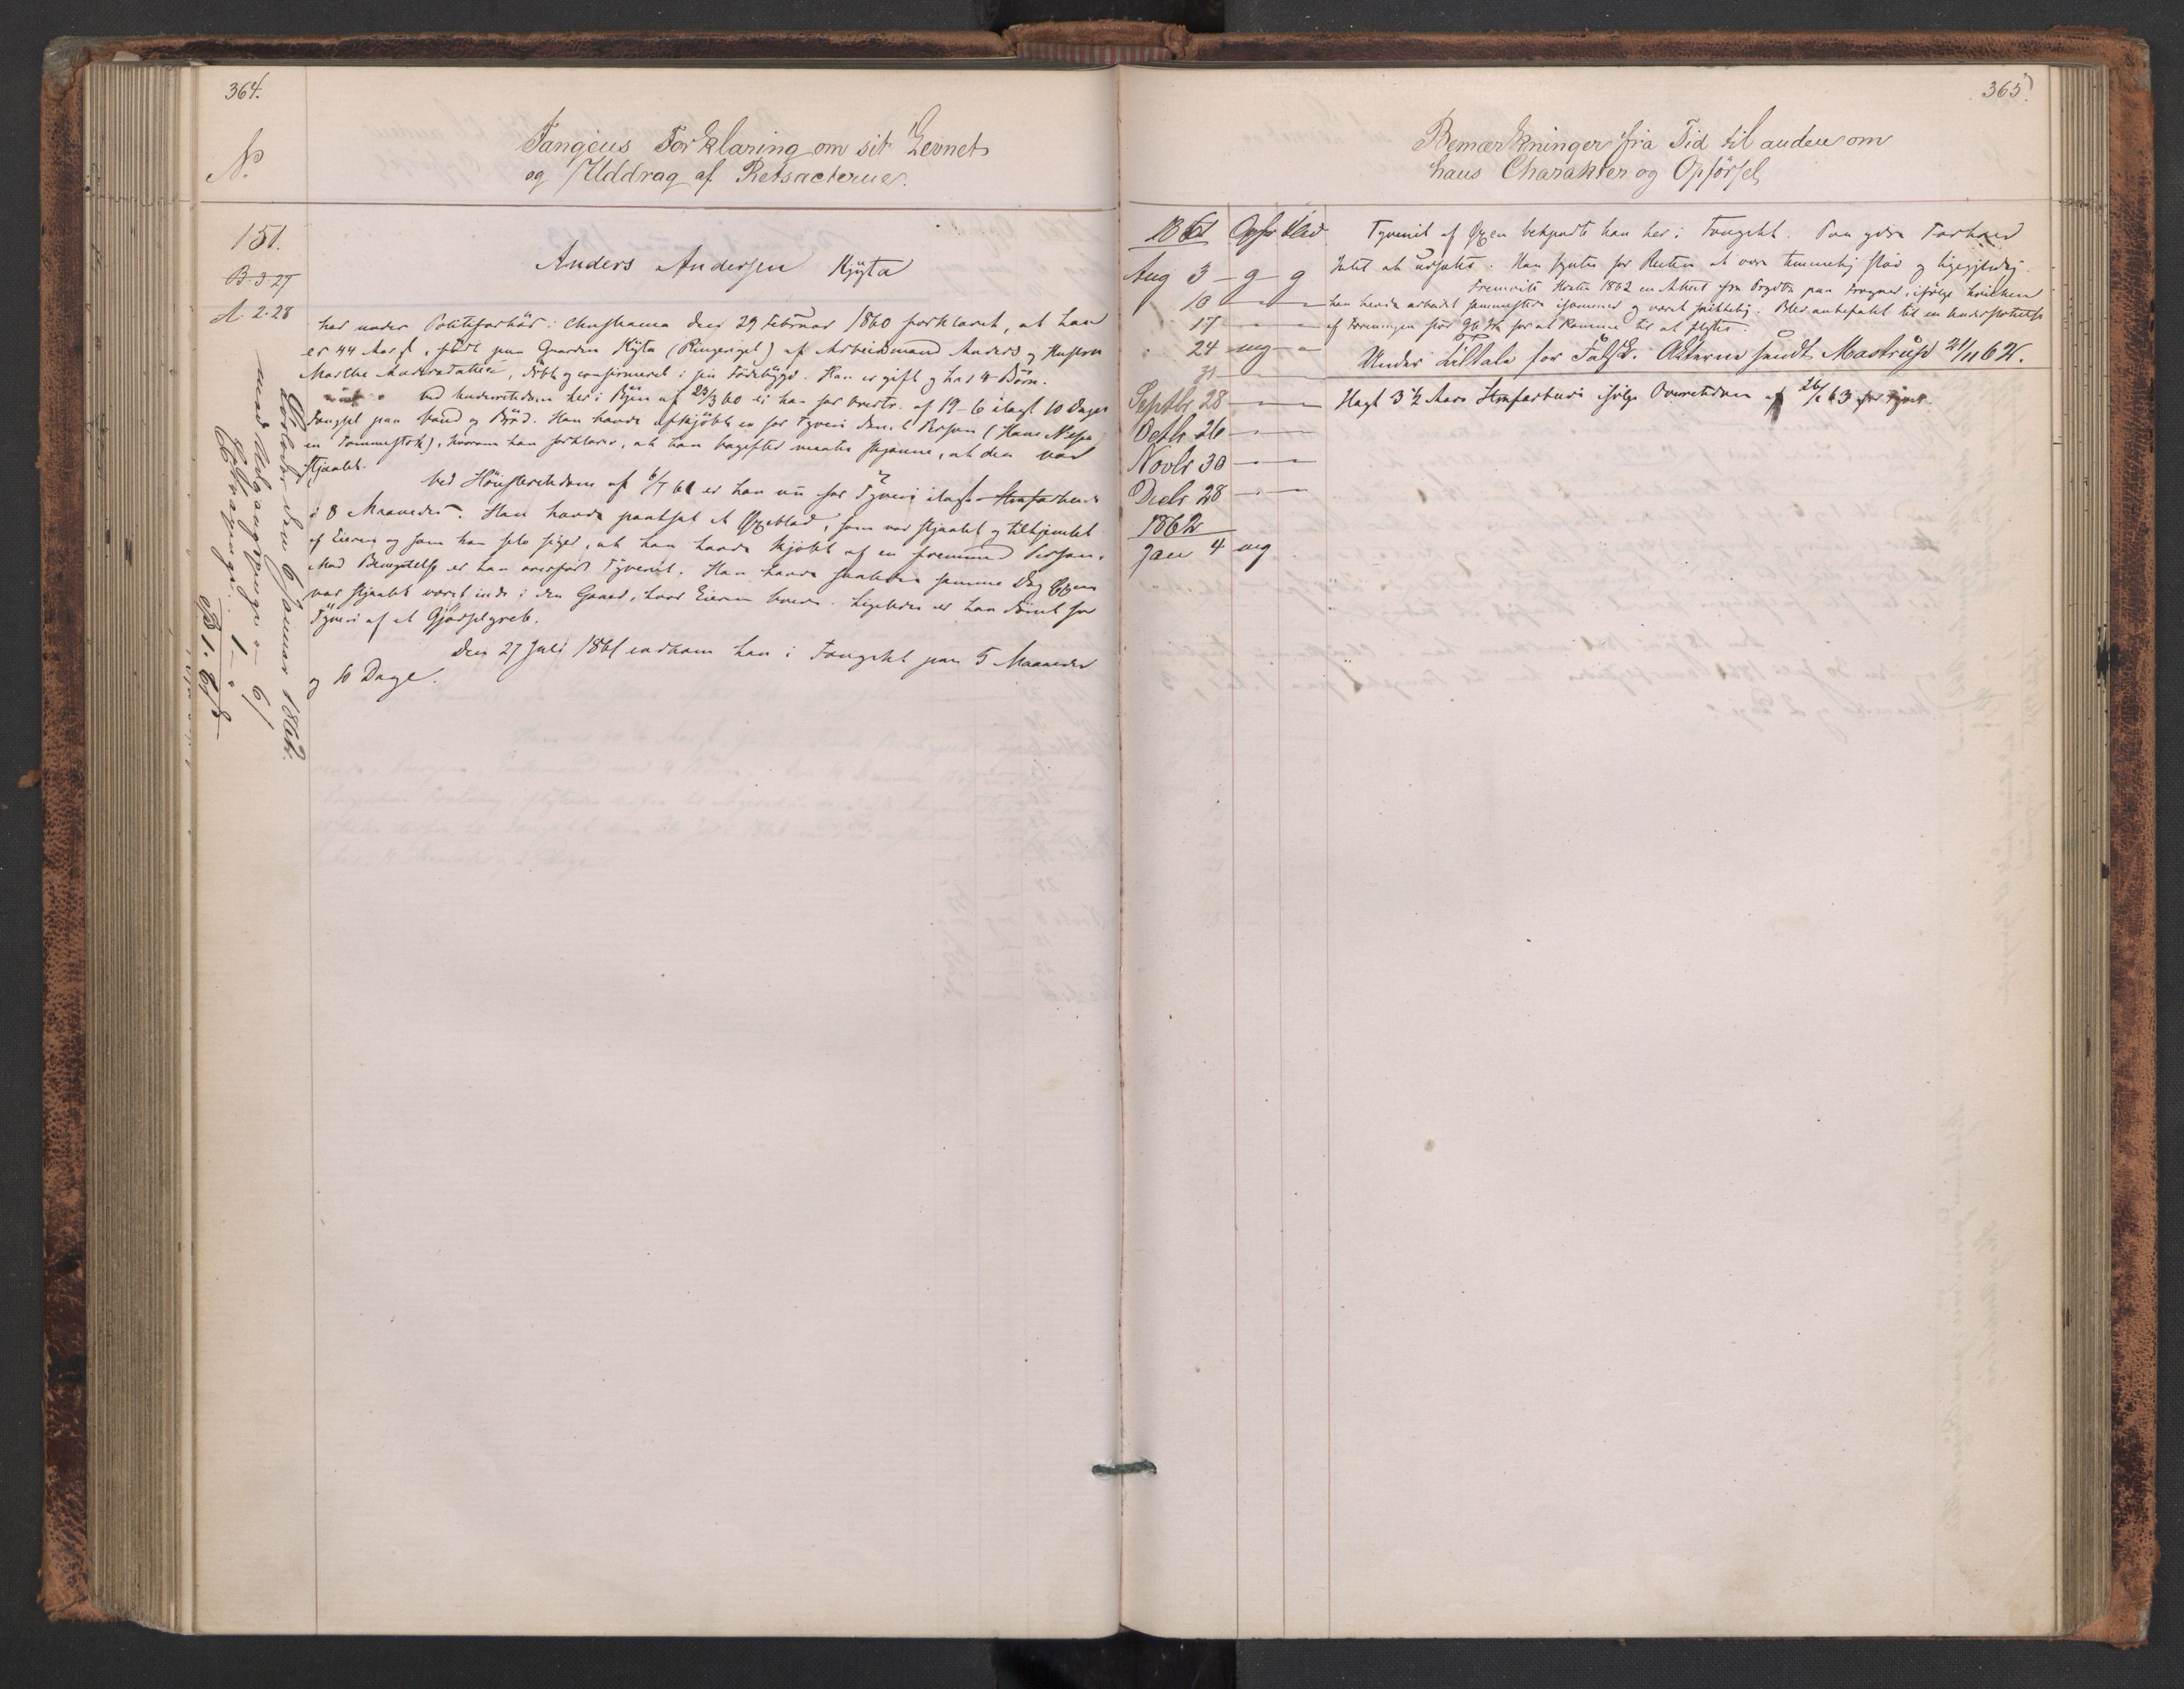 364.
No.
Fangens Forklaring om sit Levnet
og Uddrag af Retsacterne.
151.
B. 3. 27
A. 2. 28
Anders Andersen Kjÿta
har under Politiforhør i Christiania den 29 Februar 1860 forklaret, at han
er 44 Aar gl., født paa Gaarden Kÿta (Ringeriget) af Arbeidsmand Anders og Hustru
Marthe Andersdatter, døbt og confirmeret i sin Fødebÿgd. Han er gift og har 4 Børn.
Ved Underretsdom her i Bÿen af 23/3 60 er han for Overtr. af 19-6 ilagt 10 Dages
Fængsel paa Vand og Brød. Han havde afkjøbt en for Tyveri Person (Hans
en Tommestok), hvorom han forklarer, at han bagefter maatte skjønne, at den var
stjaalet.
Ved Høiesteretsdom af 6/7 61 er han nu for 2 Tyveri ilagt Strafarbeide
i 8 Maaneder. Han havde pantsat et Øxeblad, som var stjaalet og tilhjemlet
af Eieren og som han selv siger, at han havde kjøbt af en fremmed Person.
Mod Benegtelse er han overført Tyveriet. Han havde samme Dag Øxen
var stjaalet været inde i den Gaard, hvor Eieren boede. Ligeledes er han dømt for
Tÿveri af et Gjødselgreb.
Den 27 Juli 1861 indkom han i Fængslet paa 5 Maaneder
og 10 Dage.
Løsladt den 6 Januar 1862.
med Udgangspenge - 6/
1 -
365.
Bemærkninger fra Tid til anden om
hans Charakter og Opførsel
1861 Opfør Flid
Aug 3 - g - g
10 - -
17 - -
24 - mg -
31 - -
Septbr 28 - -
Octbr 26 - -
Novbr 30 - -
Decbr 28 - -
1862
Jan 4 mg
Tyveriet af Øxen betegnede han her i Fængslet. Paa hans Forhold
Intet at udsætte. Han syntes for Resten at være temmelig sløv og ligegyldig.
Fremviste Høsten 1862 en Attest fra paa Frogner, ifølge hvilken
han havde arbeidet sammesteds i sommer og været skikkelig. Blev anbefalet til en Understøttelse
af Foreningen for at komme til at flytte.
Under Tiltale for Falsk. Akterne sendt Mastrup 21/11 62.
Ilagt 3 1/2 Aars Strafarbeide ifølge Overretsdom af 26/1 63 for Tyveri.